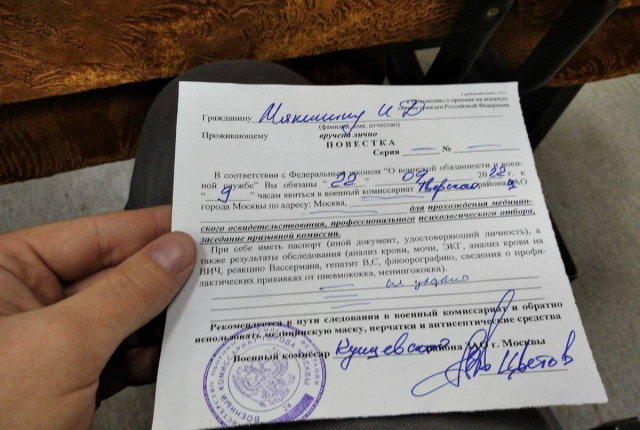 к положению о призыве на военную
службу граждан Российской Федерации
Гражданину И Д
(фамилия, имя, отчество)
Проживающему вручена лично
ПОВЕСТКА
Серия №
В соответствии с Федеральным законом "О воинской обязанности и воен-
ной службе" Вы обязаны "22" 09 2022 г. к
" 9 " часам явиться в военный комиссариат Тверского района ЦАО
города Москвы по адресу: Москва,
для прохождения медицин-
ского освидетельствования, профессионального психологического отбора,
заседание призывной комиссии.
При себе иметь паспорт (иной документ, удостоверяющий личность), а
также результаты обследования (анализ крови, мочи, ЭКГ, анализ крови на
ВИЧ, реакцию Вассермана, гепатит В,С, флюорографию, сведения о профи-
лактических прививках от пневмококка, менингококка).
не указано
Рекомендуется в пути следования в военный комиссариат и обратно
использовать медицинскую маску, перчатки и антисептические средства
Военный комиссар района ЦАО г. Москвы
Цветов
24